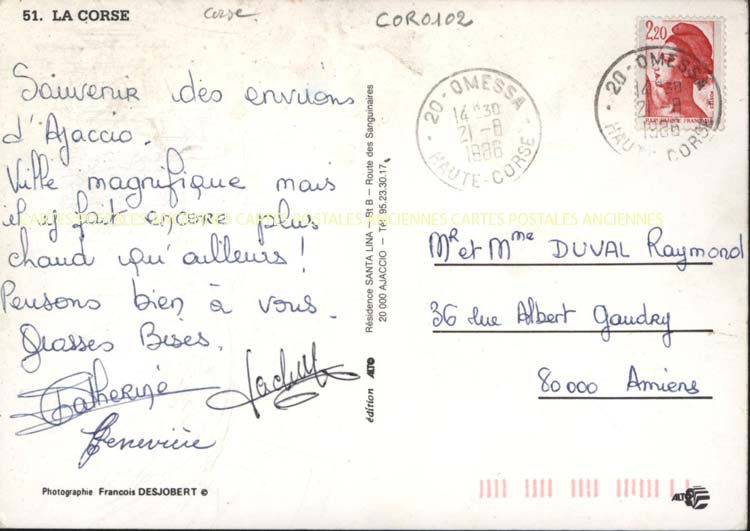 51. LA CORSE
Corse
COR0102
2,20
20 - OMESSA
14H30
21-8
1986
HAUTE-CORSE
20 - OMESSA
14H30
21-8
1986
HAUTE-CORSE
Souvenir des environs
d'Ajaccio.
Ville magnifique mais
il y fait encore plus
chaud qu'ailleurs !
Pensons bien à vous.
Grosses Bises.
Catherine
Geneviève
CARTES POSTALES ANCIENNES CARTES POSTALES ANCIENNES CARTES POSTALES ANCIENNES
Résidence SANTA LINA – Bt B – Route des Sanguinaires
20 000 AJACCIO – Tél. 95.23.30.17
édition ALTO
MR et Mme DUVAL Raymond
36 rue Albert Gaudry
80000 Amiens
Photographie Francois DESJOBERT ©
ALTO